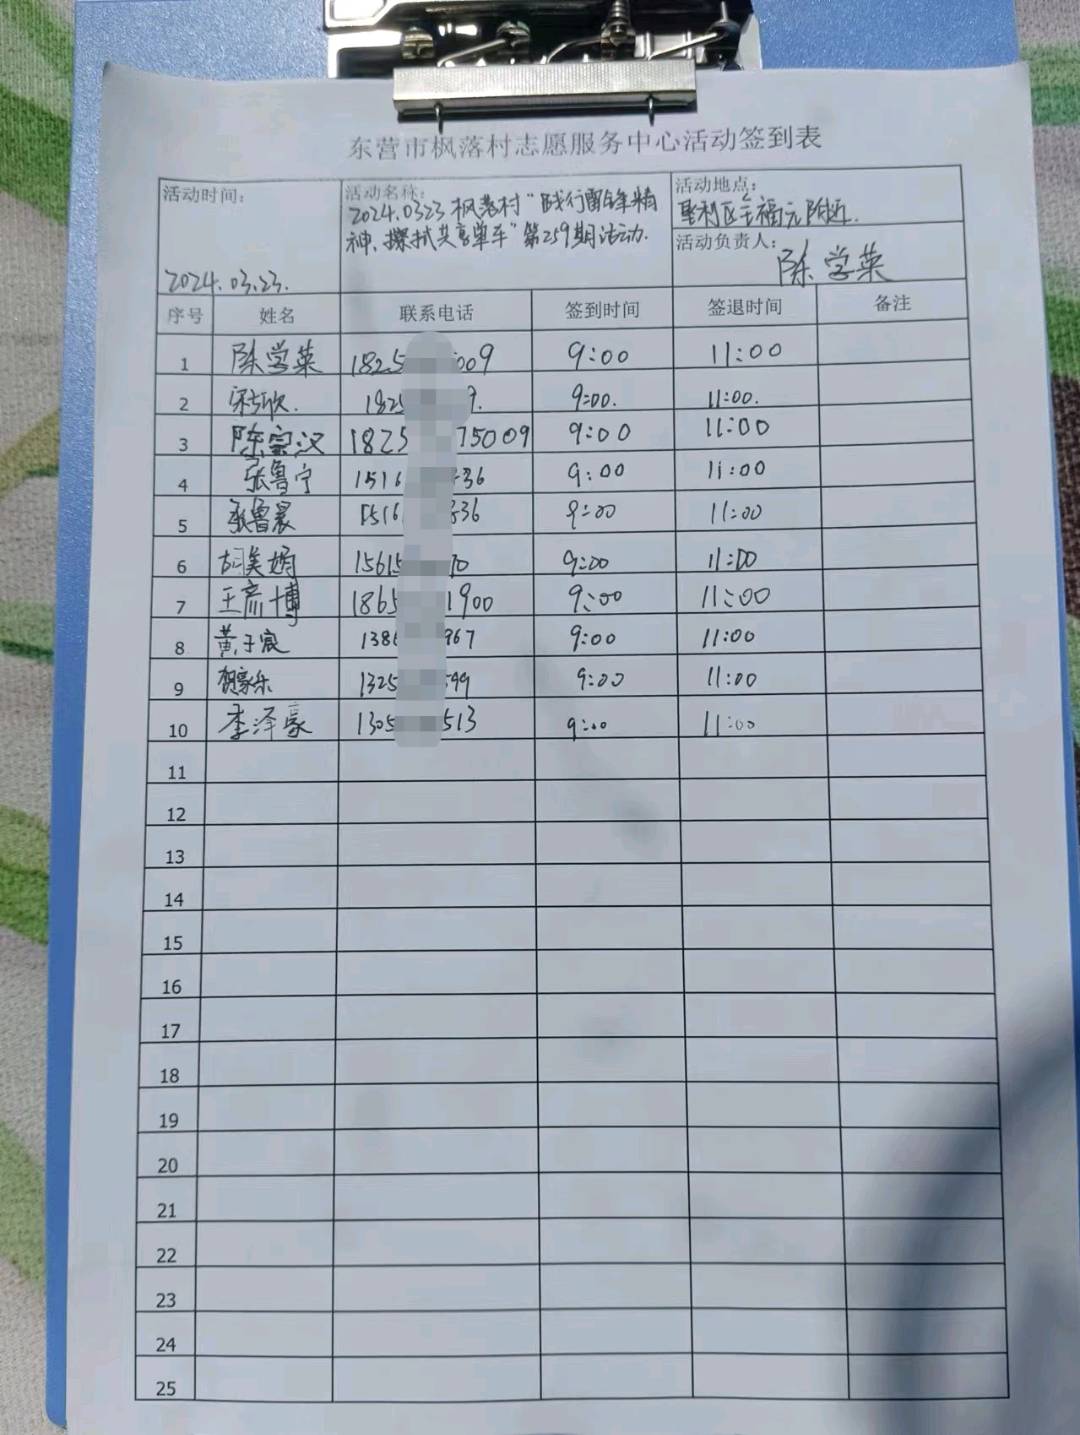 东营市枫落村志愿服务中心活动签到表
活动时间： 2024.03.23.
活动名称：
2024.0323枫落村“践行雷锋精
神、擦拭共享单车”第259期活动.
活动地点：
垦利区全福元附近.
活动负责人： 陈学英
序号 姓名 联系电话 签到时间 签退时间 备注
1 陈学英 1825 009 9:00 11:00
2 182 9. 9:00. 11:00.
3 陈宗汉 1825 75009 9:00 11:00
4 张鲁宁 1516 36 9:00 11:00
5 张鲁晨 1516 36 9:00 11:00
6 胡美娟 1561 70 9:00 11:00
7 王彦博 1865 1900 9:00 11:00
8 黄子宸 138 967 9:00 11:00
9 1325 599 9:00 11:00
10 李泽豪 1305 513 9:00 11:00
11
12
13
14
15
16
17
18
19
20
21
22
23
24
25